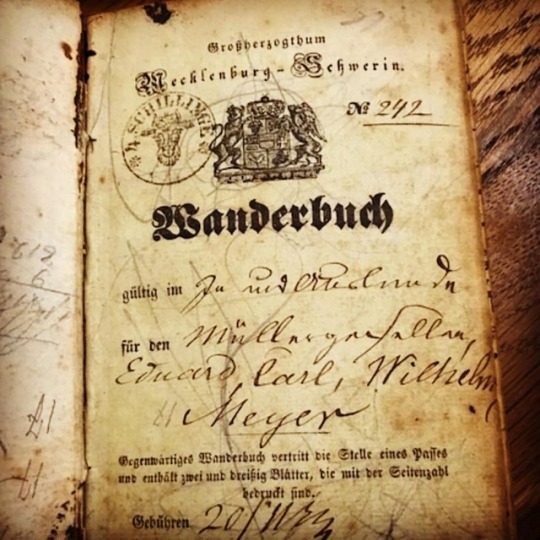 Großherzogthum
Mecklenburg-Schwerin.
4 SCHILLINGE
№ 242
Wanderbuch
gültig im In und Auslande
für den Müllergesellen,
Eduard, Carl, Wilhelm
Meyer
Gegenwärtiges Wanderbuch vertritt die Stelle eines Passes
und enthält zwei und dreißig Blätter, die mit der Seitenzahl
bedruckt sind.
Gebühren 20